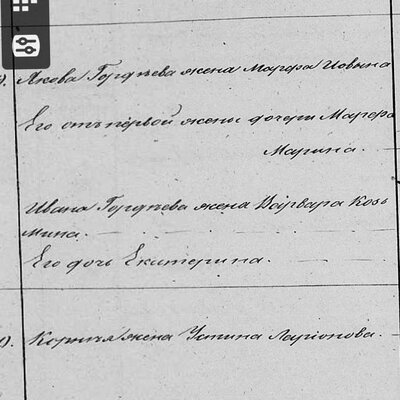 Якова Гордѣева жена Марѳа Іовлина
Его отъ первой жены дочери Марѳа
Марина.
Ивана Гордѣева жена Варвара Козь
мина.
Его дочь Екатерина.
жена Устина Ларіонова.